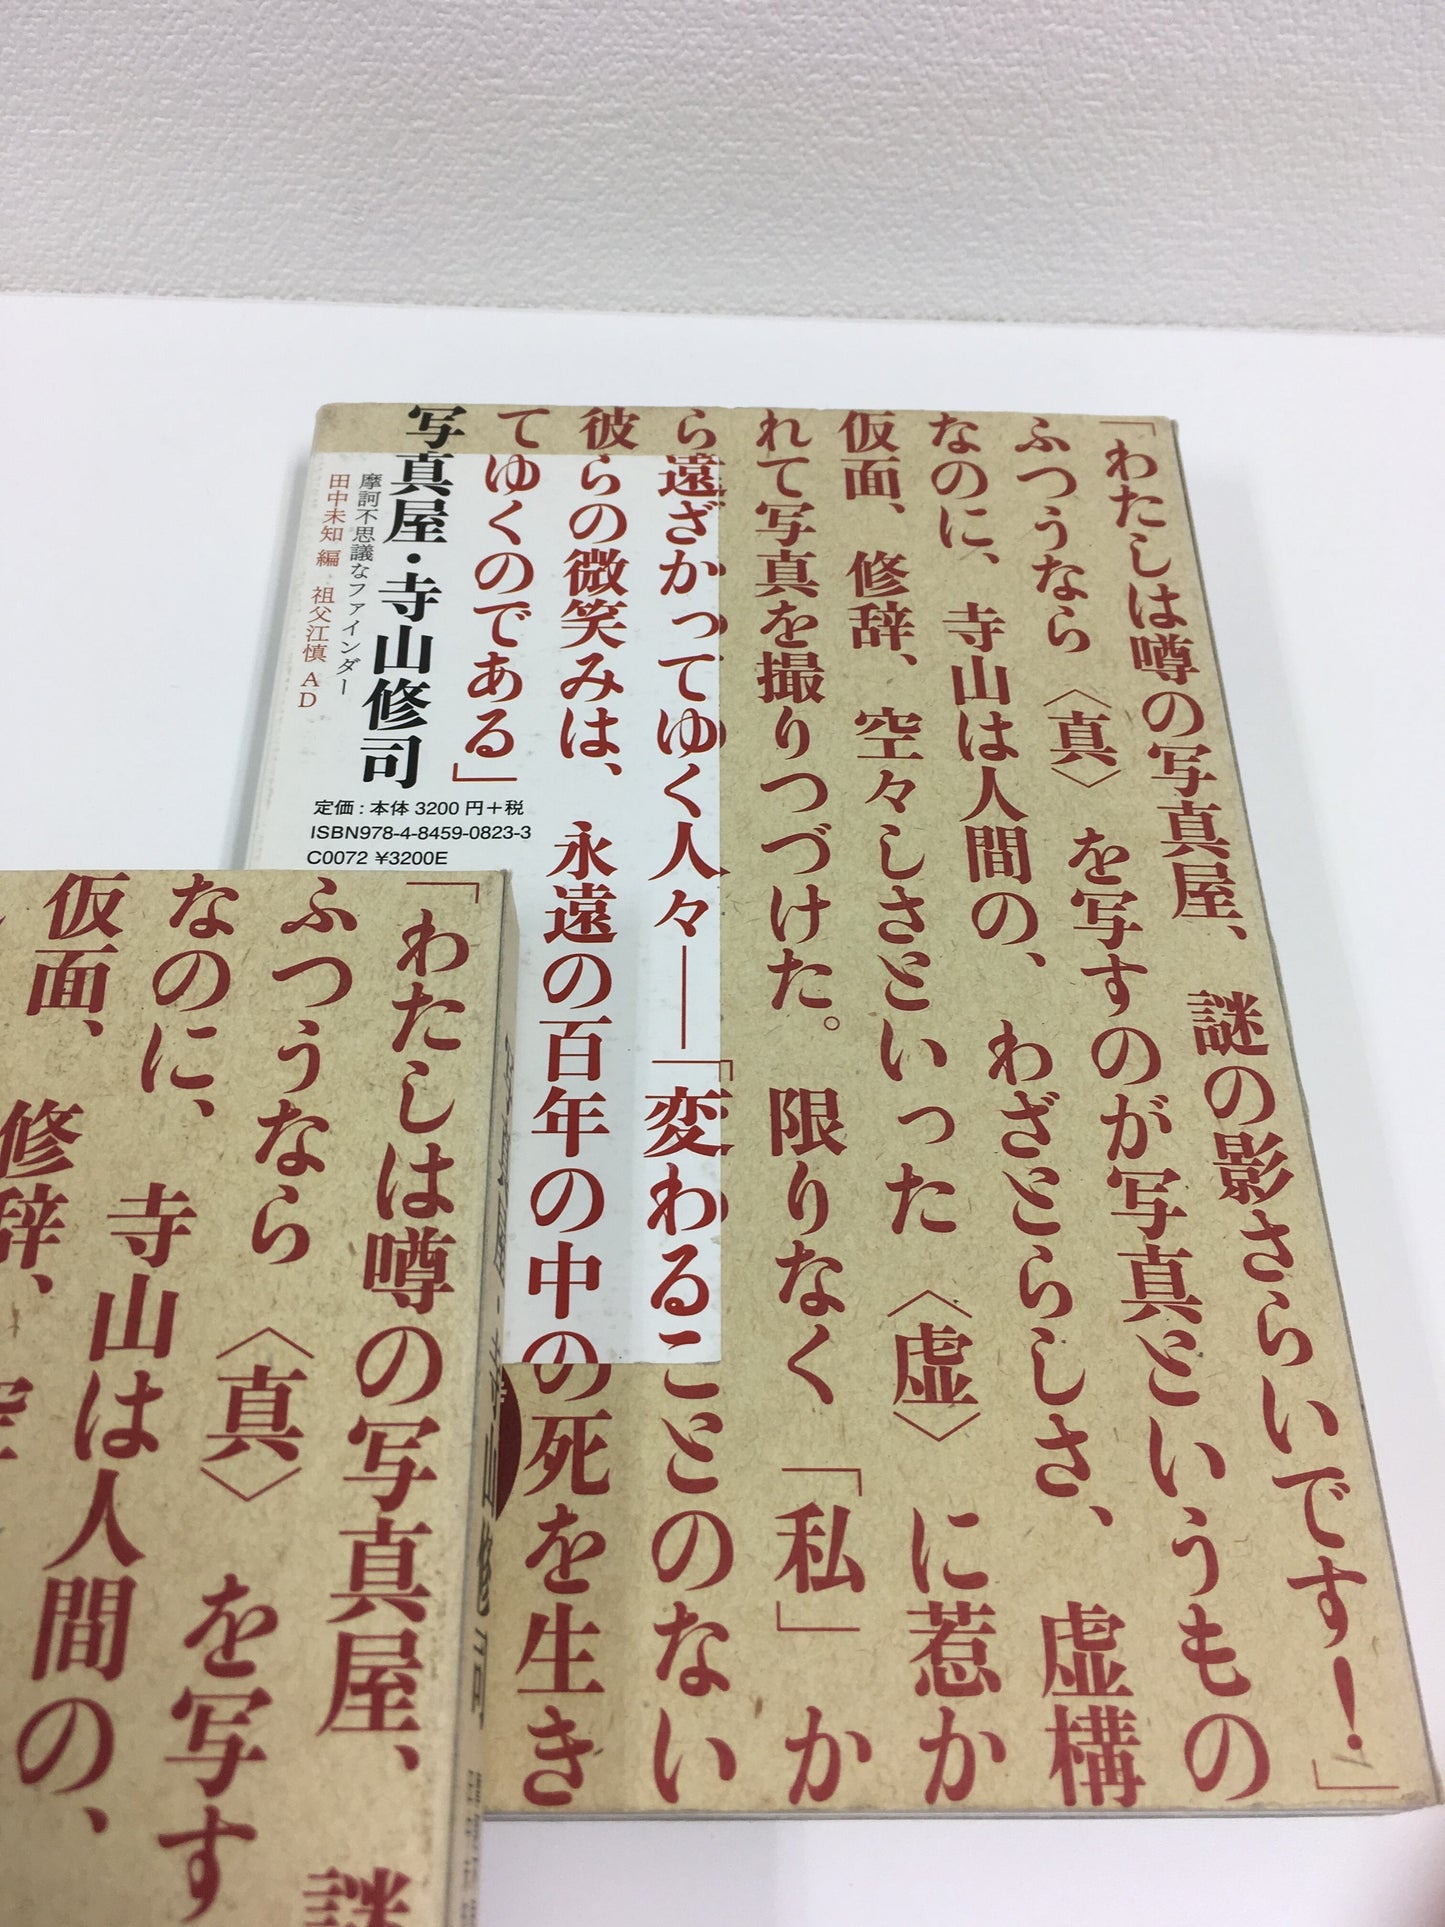 「わたしは噂の写真屋、謎の影さらいです！」
ふつうなら〈真〉を写すのが写真というもの
なのに、寺山は人間の、わざとらしさ、虚構
仮面、修辞、空々しさといった〈虚〉に惹か
れて写真を撮りつづけた。限りなく「私」か
ら遠ざかってゆく人々――「変わることのない
彼らの微笑みは、永遠の百年の中の死を生き
てゆくのである」
写真屋・寺山修司
摩訶不思議なファインダー
田中未知 編 祖父江慎 AD
定価：本体 3200 円＋税
ISBN978-4-8459-0823-3
C0072 ¥3200E
「わたしは噂の写真屋、謎
ふつうなら〈真〉を写す
なのに、寺山は人間の、
仮面、修辞、